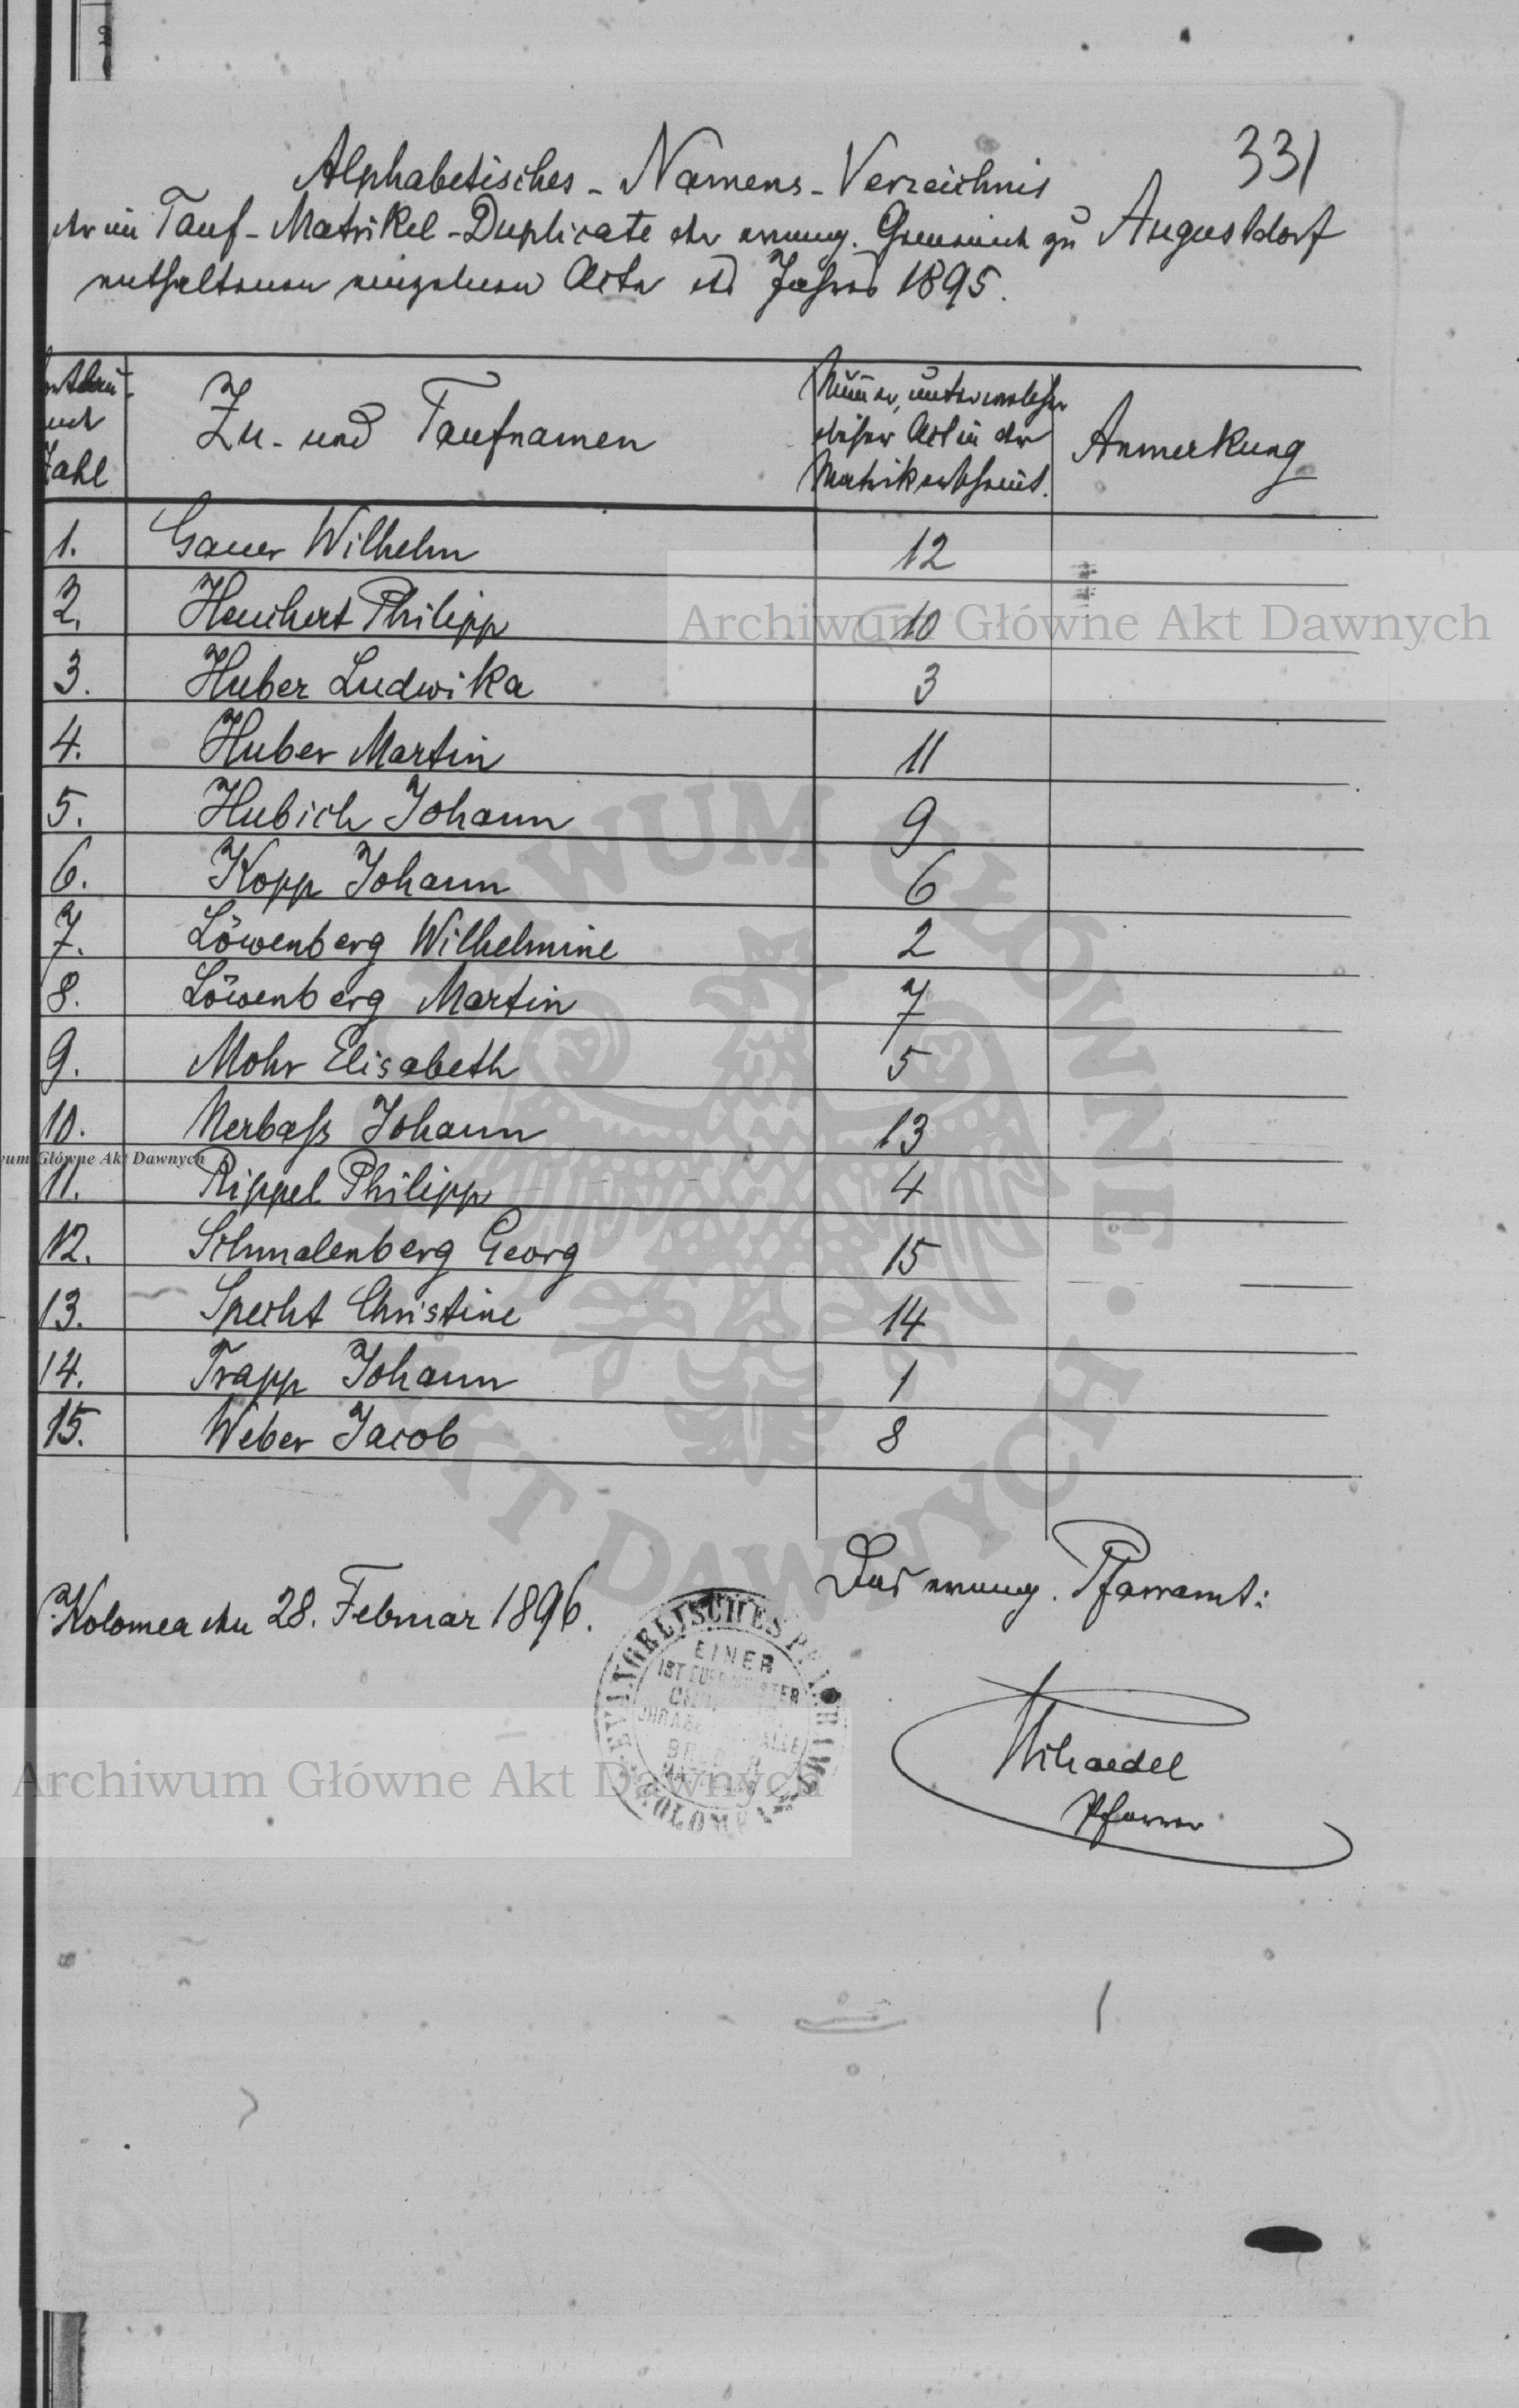 331
Alphabetisches - Namens - Verzeichnis
der im Tauf - Matrikel - Duplicate der evang. Gemeinde zu Augustdorf
enthaltenen einzelnen Acte des Jahres 1895.
Zahl
Zu- und Taufnamen
Nummer, unter welcher
dieser Act in der
Matrik erscheint.
Anmerkung
1. Gauer Wilhelm 12
2. Philipp 10
3. Huber Ludwika 3
4. Huber Martin 11
5. Hubich Johann 9
6. Kopp Johann 6
7. Löwenberg Wilhelmine 2
8. Löwenberg Martin 7
9. Mohr Elisabeth 5
10. Nerbaß Johann 13
11. Rippel Philipp 4
12. Schmalenberg Georg 15
13. Specht Christine 14
14. Trapp Johann 1
15. Weber Jacob 8
Kolomea den 28. Februar 1896.
Das evang. Pfarramt:
Pfarrer
EVANGELISCHES
EINER
IST EUER MEISTER
Archiwum Główne Akt Dawnych
Archiwum Główne Akt Dawnych
Główne Akt Dawnych
ARCHIWUM GŁÓWNE • AKT DAWNYCH •